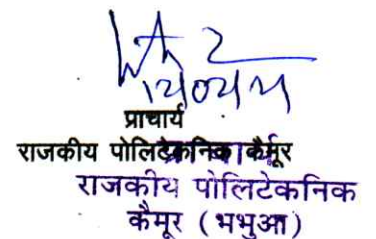 प्राचार्य
राजकीय पोलिटेकनिक कैमूर
राजकीय पोलिटेकनिक
कैमूर ( भभुआ )